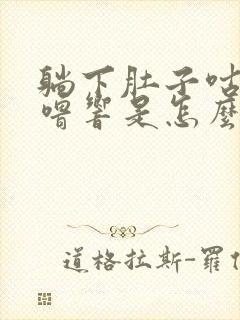 躺下肚子咕
噜響是怎麼
道格拉斯-羅